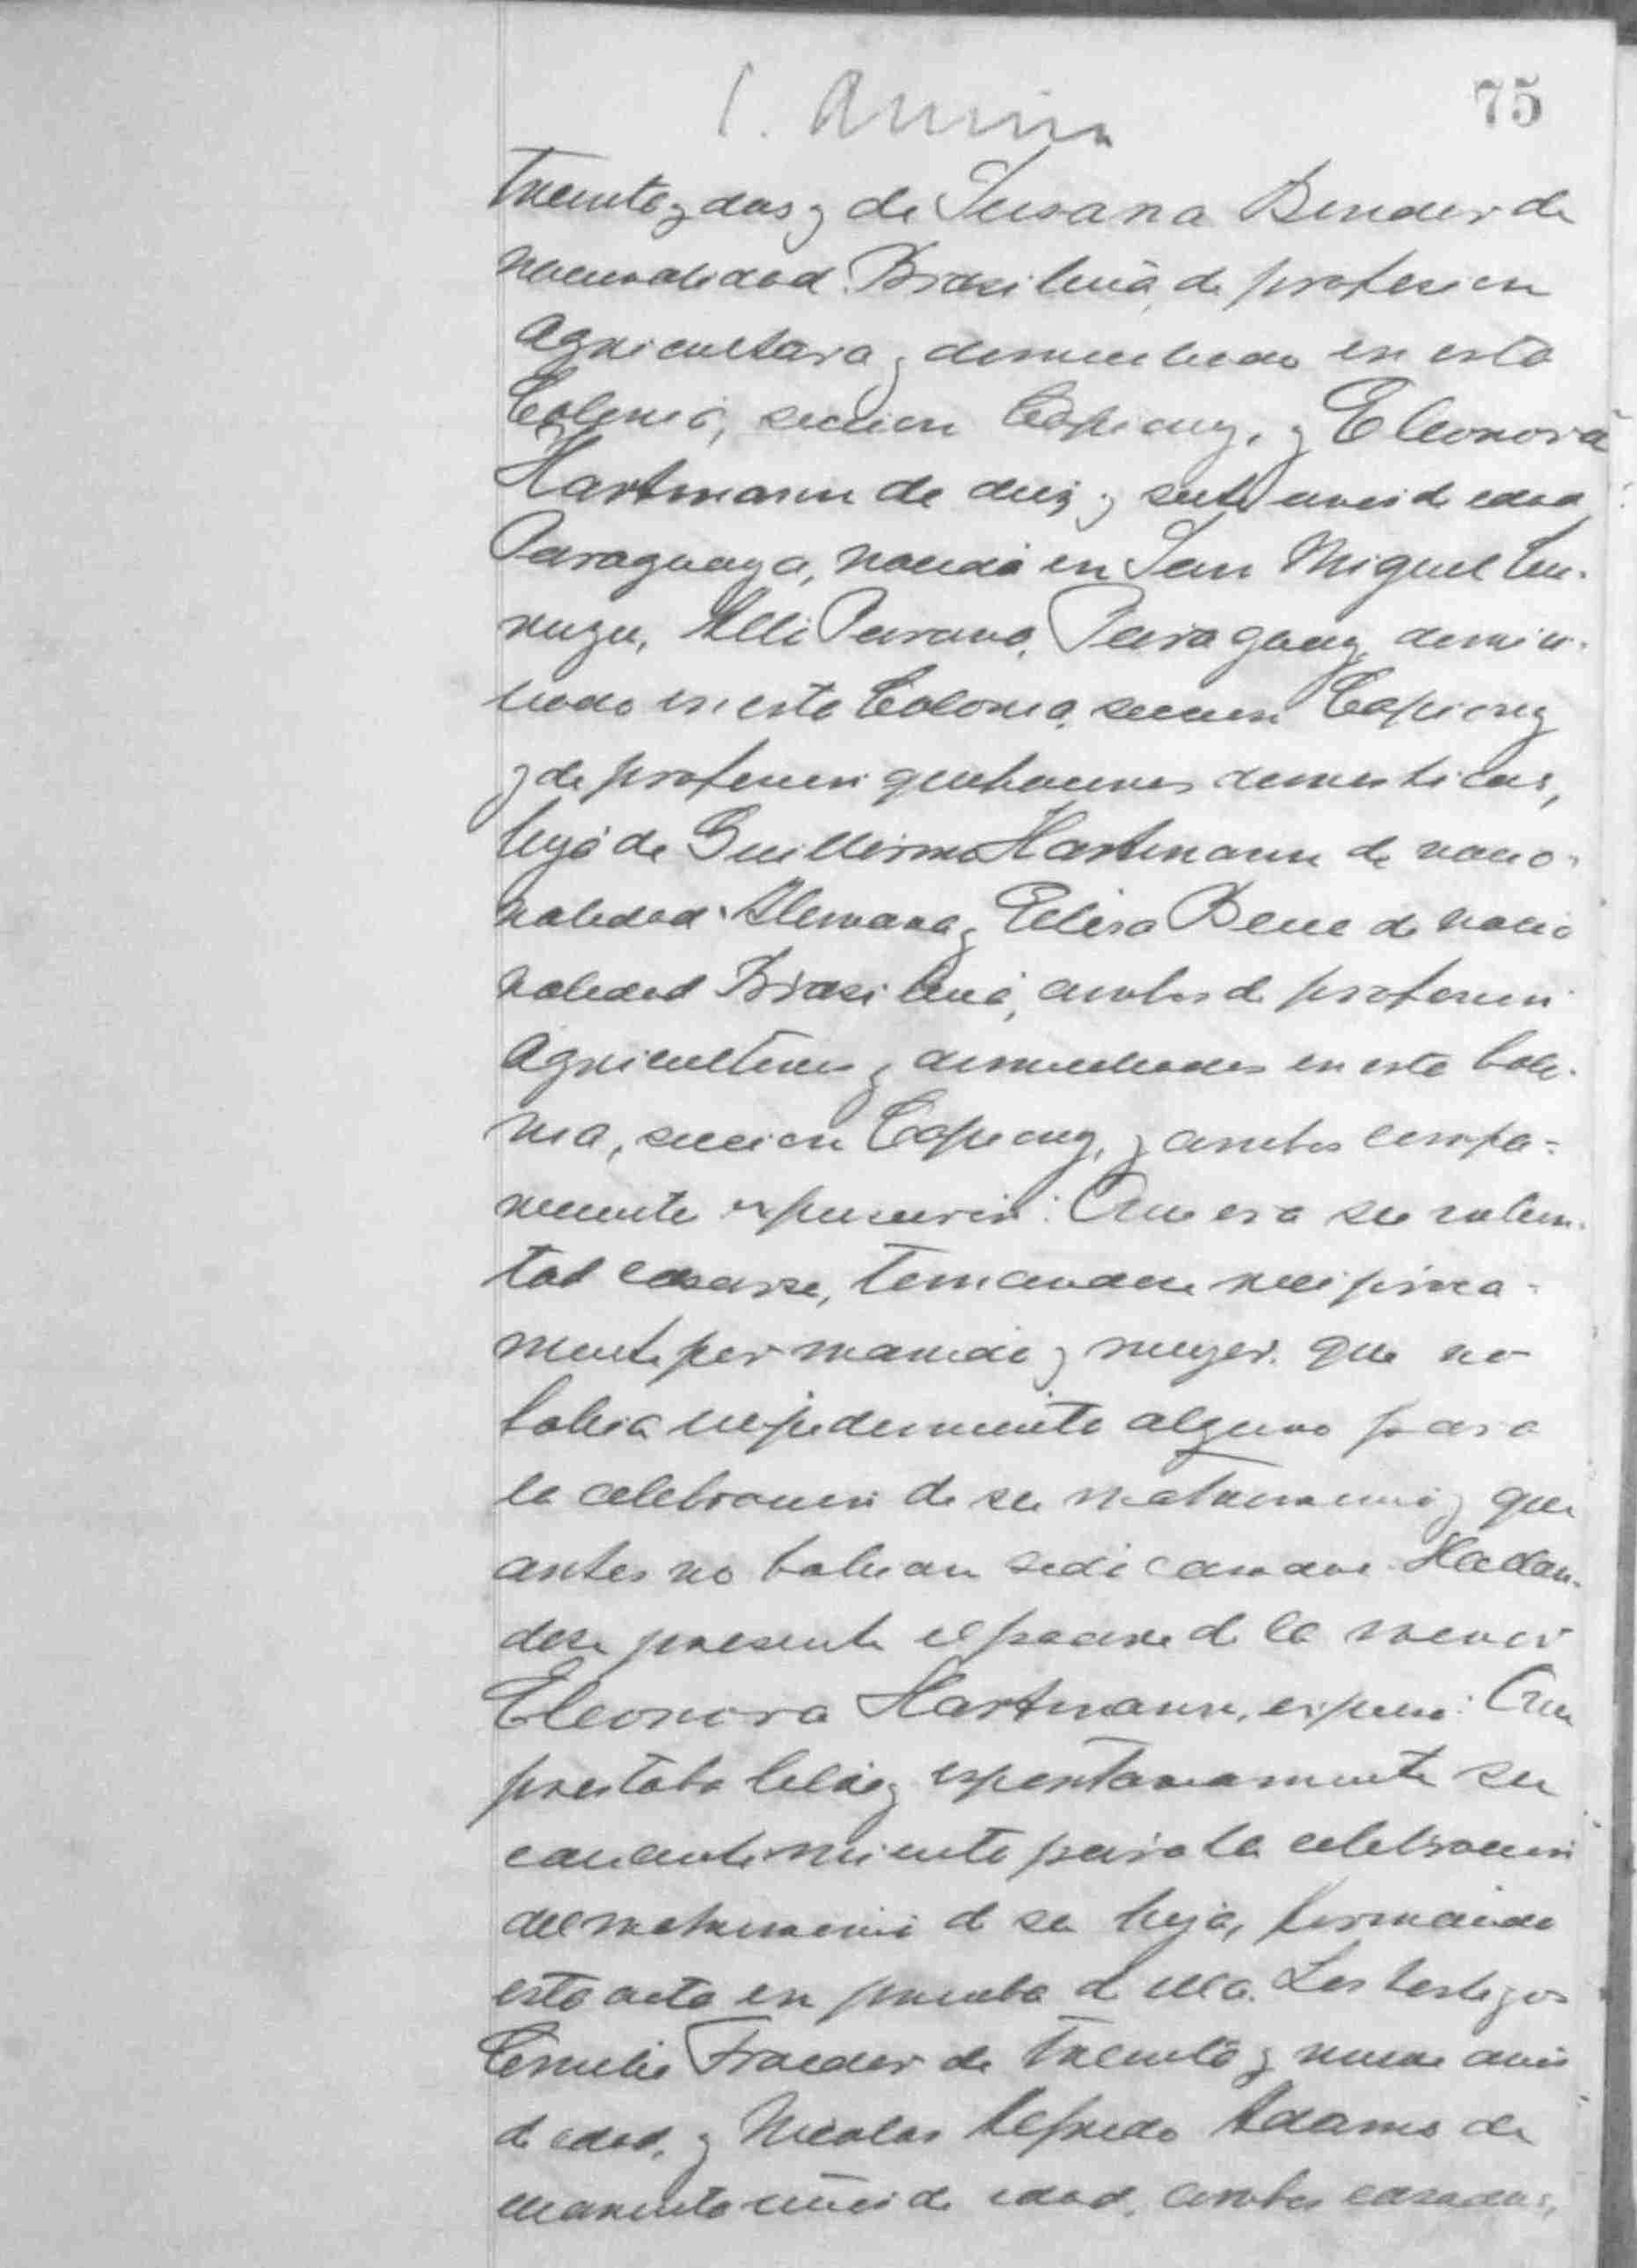 75
treinta y dos y de Susana Bender de
nacionalidad Brasileña, de profesion
agricultora y domiciliado en esta
Colonia, seccion Capiovy, y Eleonora
Hartmann de diez y siete años de edad
Paraguaya, nacida en San Miguel Cu-
ruzu, Alto Parana, Paraguay, domici-
liada en esta Colonia, seccion Capiovy
y de profesion quehaceres domesticos,
hija de Guillermo Hartmann de nacio-
nalidad Alemana y Elisa de nacio
nalidad Brasileña, ambos de profesion
agricultores y domiciliados en esta Colo-
nia, seccion Capiovy, y ambos compa-
reciente expusieron: Que era su volun-
tad casarse, tomandose reciproca-
mente por marido y muger. que no
habia impedimento alguno para
la celebracion de su matrimonio y que
antes no habian sido casados. Hallan-
dose presente el padre de la menor
Eleonora Hartmann, expuso: Que
prestaba libre y espontaneamente su
consentimiento para la celebracion
del matrimonio de su hija, firmando
esta acta en prueba de ella. Los testigos
Emilio Fraeder de treinta y nueve años
de edad, y Nicolas Alfredo Adams de
cuarenta años de edad, ambos casados,